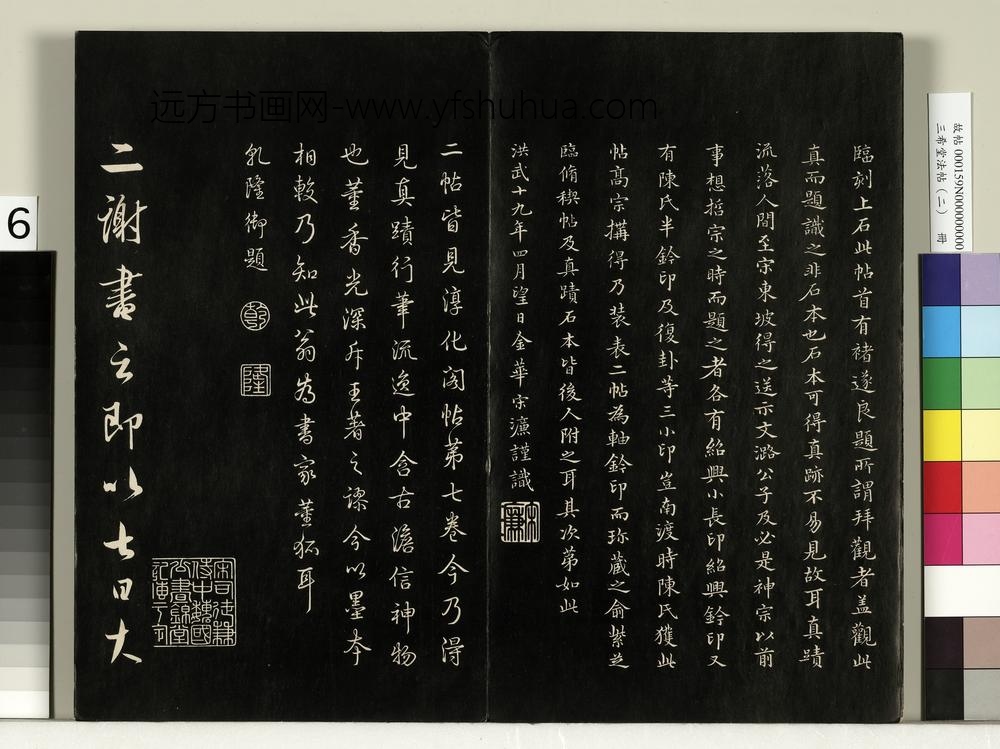 远方书画网-www.yfshuhua.com
故帖 000159N000000000
三希堂法帖(二) 冊
6
臨刻上石此帖首有褚遂良題所謂拜觀者盖觀此
真而題識之非石本也石本可得真跡不易見故耳真蹟
流落人間至宗東坡得之送示文潞公子及必是神宗以前
事想哲宗之時而題之者各有紹興小長印紹興鈐印又
有陳氏半鈐印及復卦等三小印豈南渡時陳氏獲此
帖高宗搆得乃装表二帖為軸鈐印而珎藏之俞紫芝
臨脩稧帖及真蹟石本皆後人附之耳其次第如此
洪武十九年四月望日金華宋濂謹識
宋濂
二帖皆見淳化閣帖第七卷今乃得
見真蹟行筆流逸中含古澹信神物
也董香光深斥王著之謬今以墨本
相較乃知此翁為書家董狐耳
乹隆御題
乾
隆
二謝書云即以七日大